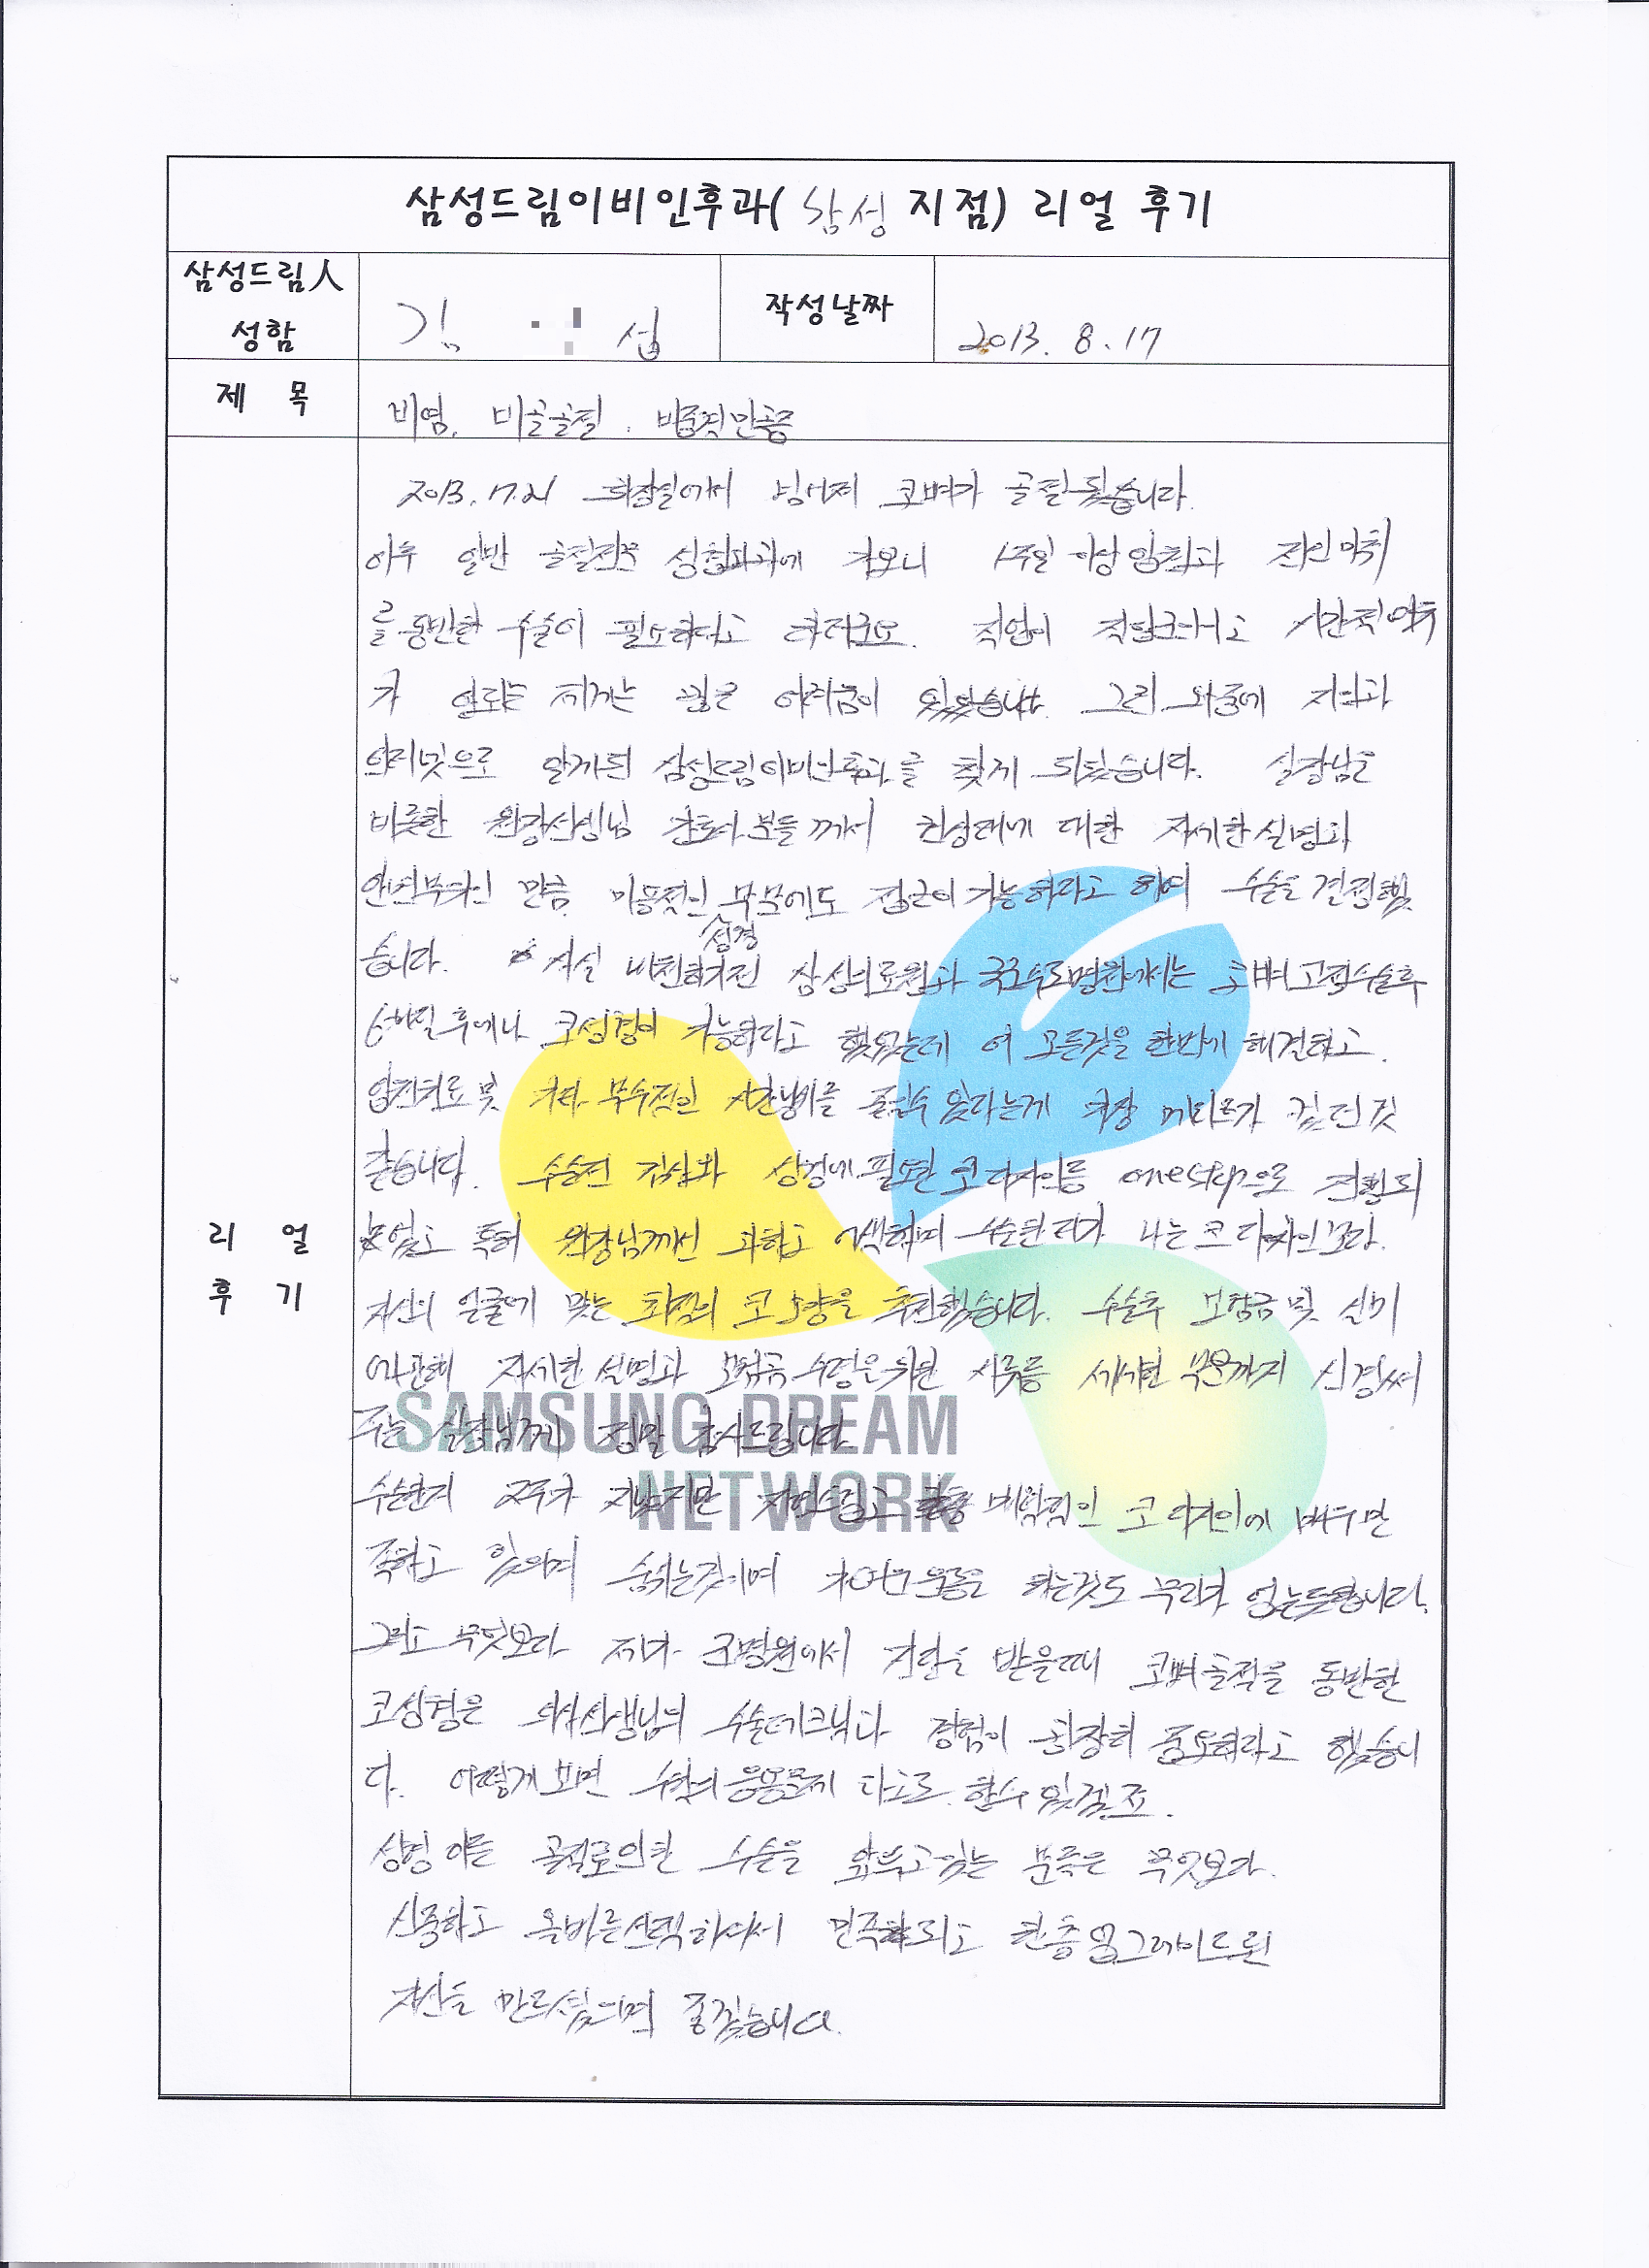 삼성드림이비인후과( 삼성 지점) 리얼 후기
삼성드림人
성함
김 섭
작성날짜
2013. 8. 17
제 목
비염, 비골골절, 비중격만곡증
2013. 7. 21 화장실에서 넘어져 코뼈가 골절됐습니다.
이후 일반 골절전문 성형외과에 가보니 1주일 이상 입원과 전신마취
를 동반한 수술이 필요하다고 하더군요. 직업이 직업인지라 시간적 여유
가 없는 저에게는 많은 어려움이 있었습니다. 그런 와중에 지인과
인터넷으로 알게된 삼성드림이비인후과를 찾게 되었습니다. 실장님을
비롯한 원장선생님 간호사 분들께서 진성형에 대한 자세한 설명과
안면부위인 만큼 미용적인 부분에도 접근이 가능하다고 하여 수술을 결정했
습니다. 사실 비전하기전 삼성의료원과 국군수도병원에서는 코뼈 고정수술후
6개월 후에나 코성형이 가능하다고 했었는데 이 모든것을 한번에 해결하고
입원치료 및 기타 부수적인 시간낭비를 줄일수 있다는게 가장 메리트가 컸던것
같습니다. 수술전 검사와 성형에 필요한 코 디자인등 onestep으로 진행되
었고 특히 원장님께선 과하고 어색하며 수술한 티가 나는 코 디자인보다
자신의 얼굴에 맞는 최적의 코 모양을 추천했습니다. 수술후 보험금 및 실비
에 관해 자세한 설명과 보험금 수령을 위한 서류등 세세한 부분까지 신경써
주는 실장님께 정말 감사드립니다.
수술한지 2주가 지났지만 자연스럽고 매력적인 코 디자인에 매우 만
족하고 있으며 숨쉬는것이며 가벼운 운동을 하는것도 무리가 없는듯합니다.
그리고 무엇보다 제가 큰병원에서 진찰을 받을때 코뼈 골절을 동반한
코성형은 의사선생님의 수술테크닉과 경험이 굉장히 중요하다고 했습니
다. 어떻게 보면 수학의 응용문제 라고도 할수 있겠죠.
성형 이든 골절로 인한 수술을 앞두고 있는 분들은 무엇보다
신중하고 올바른 선택하여서 만족하고 한층 업그레이드된
자신을 만드셨으면 좋겠습니다.
리 얼
후 기
SAMSUNG DREAM
NETWORK